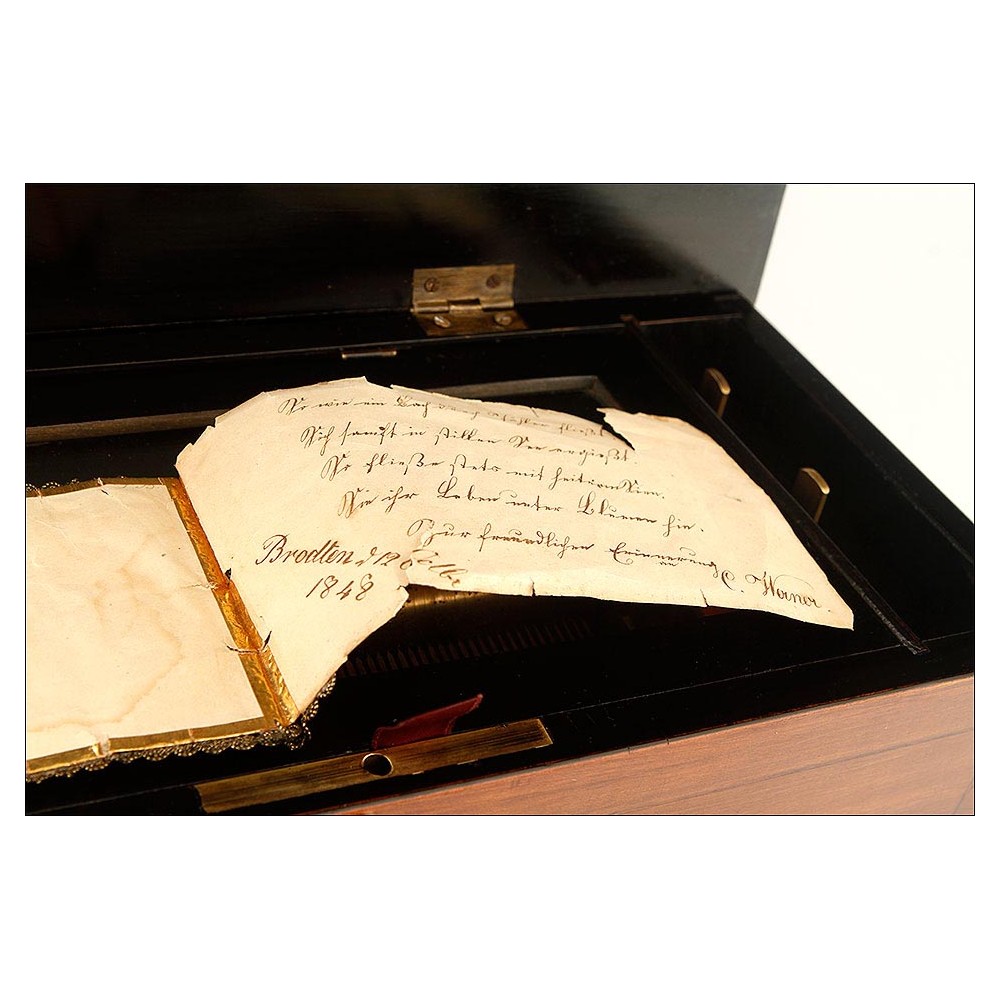 So wie ein Bach durch fließt
Sich sanft in stillen See ergießt.
So fließe stets mit heitrem Sinn.
Sie ihr Leben unter Blumen hin.
Zur freundlichen Erinnerung
an C. Werner.
Brodten d 12
1848